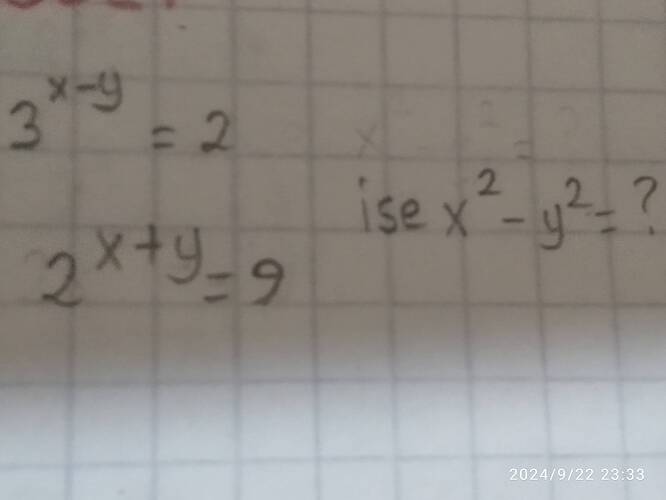 3^{x-y} = 2
ise x² - y² = ?
2^{x+y} = 9
2024/9/22 23:33